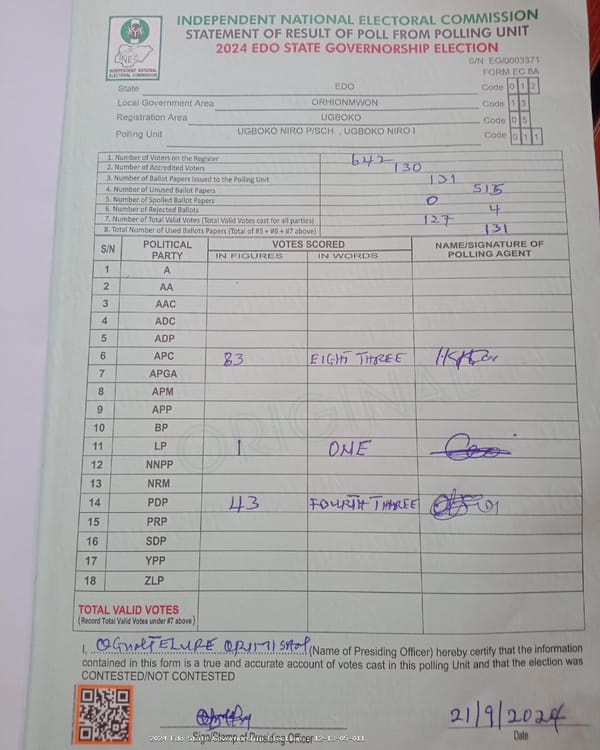 INDEPENDENT NATIONAL ELECTORAL COMMISSION
STATEMENT OF RESULT OF POLL FROM POLLING UNIT
2024 EDO STATE GOVERNORSHIP ELECTION
INEC
INDEPENDENT NATIONAL ELECTORAL COMMISSION
S/N: EG/0003371
FORM EC 8A
State EDO Code 0 1 2
Local Government Area ORHIONMWON Code 1 3
Registration Area UGBOKO Code 0 5
Polling Unit UGBOKO NIRO P/SCH. , UGBOKO NIRO I Code 0 1 1
1. Number of Voters on the Register 642
2. Number of Accredited Voters 130
3. Number of Ballot Papers Issued to the Polling Unit 131
4. Number of Unused Ballot Papers 515
5. Number of Spoiled Ballot Papers 0
6. Number of Rejected Ballots 4
7. Number of Total Valid Votes (Total Valid Votes cast for all parties) 127
8. Total Number of Used Ballots Papers (Total of #5 + #6 + #7 above) 131
S/N POLITICAL PARTY VOTES SCORED NAME/SIGNATURE OF POLLING AGENT
IN FIGURES IN WORDS
1 A
2 AA
3 AAC
4 ADC
5 ADP
6 APC 83 EIGHT THREE
7 APGA
8 APM
9 APP
10 BP
11 LP 1 ONE
12 NNPP
13 NRM
14 PDP 43 FOURTH THREE
15 PRP
16 SDP
17 YPP
18 ZLP
ORIGINAL
TOTAL VALID VOTES
(Record Total Valid Votes under #7 above)
I, (Name of Presiding Officer) hereby certify that the information
contained in this form is a true and accurate account of votes cast in this polling Unit and that the election was
CONTESTED/NOT CONTESTED
21/9/2024
Sign/Stamp of Presiding Officer Date